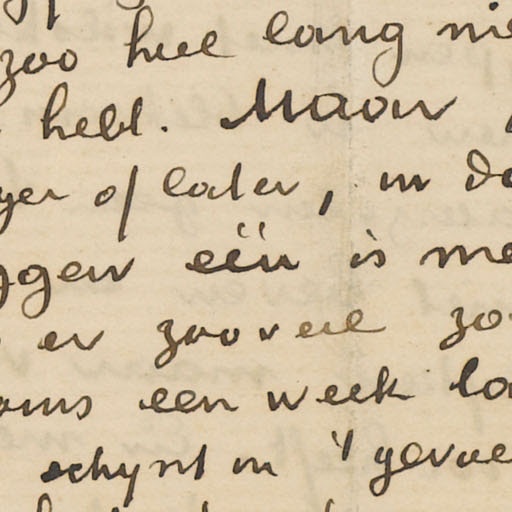 zoo heel lang nie
hebt. Maar
yer of later, in da
ggen eën is me
er zooveel zo
oms een week la
schynt in 't gevoe